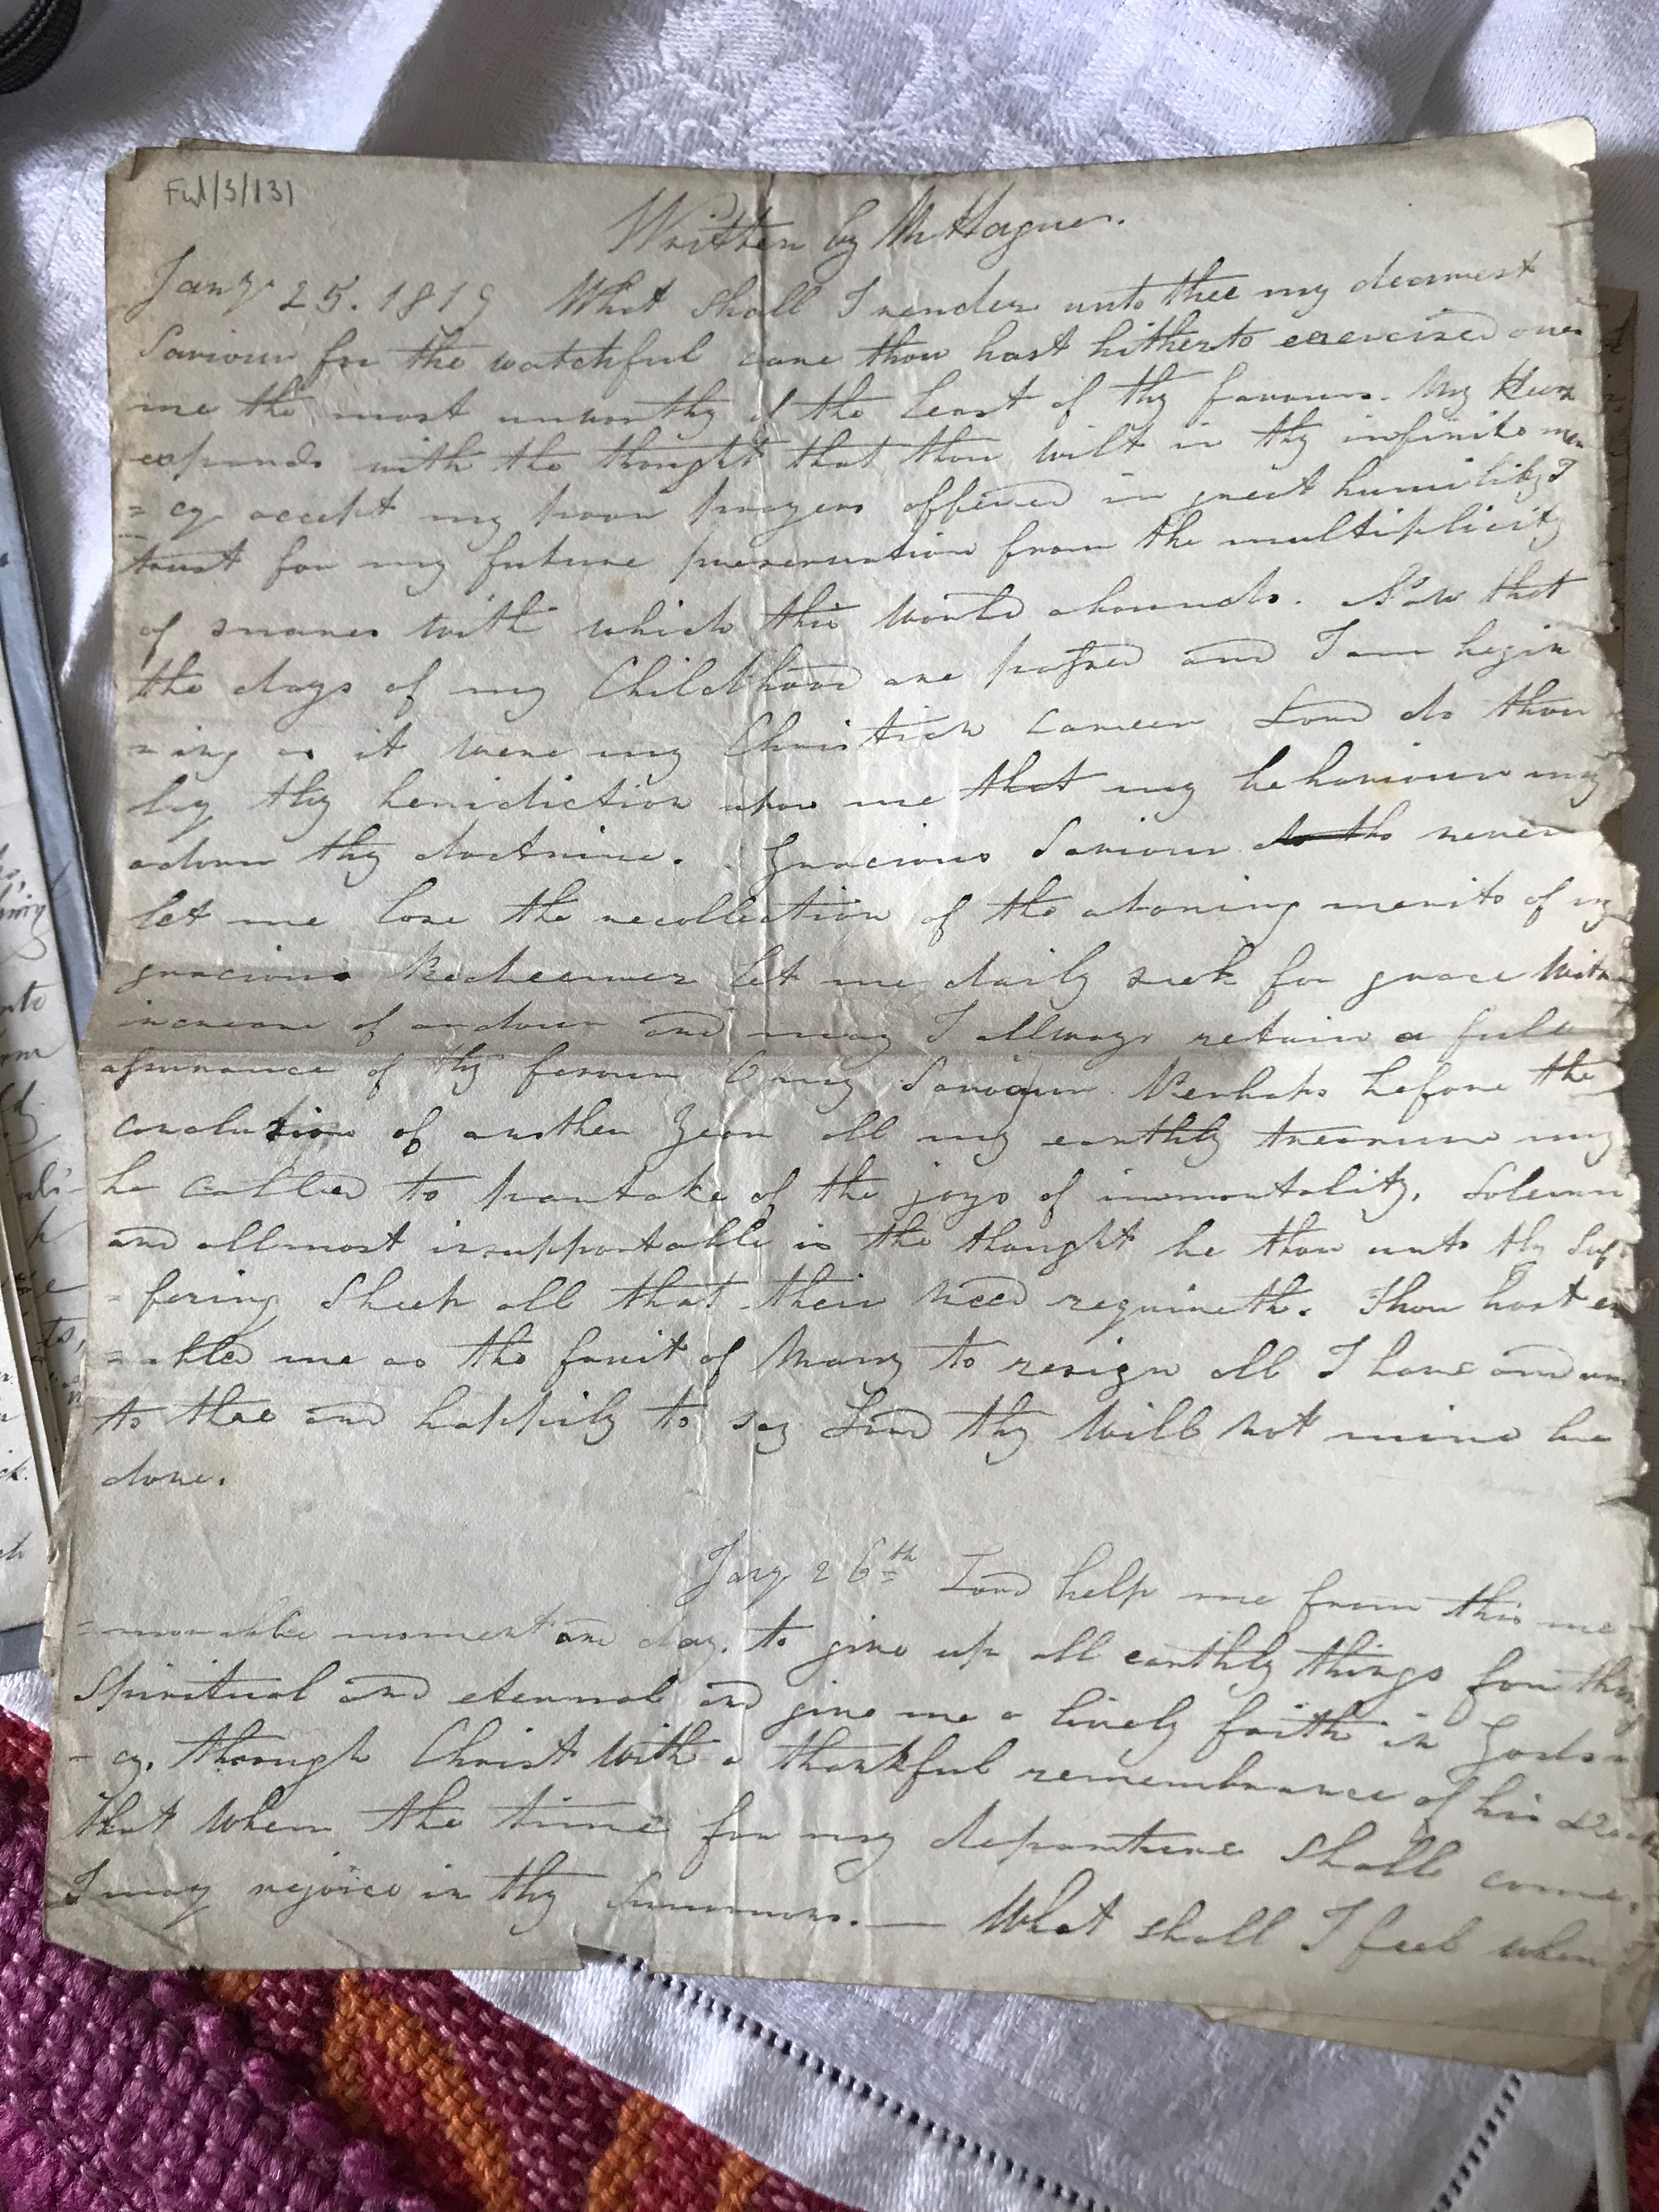 Ful/3/131
Written by Mr Hague.
Jany 25. 1819 What shall I render unto thee my dearest
Saviour for the watchful care thou hast hitherto exercised over
me the most unworthy of the least of thy favours. My Heart
expands with the thought that thou wilt in thy infinite mer
= cy accept my poor prayers offered in great humility I
trust for my future preservation from the multiplicity
of snares with which this world abounds. Now that
the days of my Childhood are passed and I am begin
= ing as it were my Christian Career Lord do thou
lay thy benidiction upon me that my behaviour may
adorn thy doctrine. Gracious Saviour do tho never
let me lose the recollection of the atoning merits of my
gracious Redeemer let me daily seek for grace with
increase of ardour and may I allways retain a full
assurance of thy favour O my Saviour Perhaps before the
conclusion of another Year all my earthly treasure may
be called to partake of the joys of immortality. Solemn
and allmost insupportable is the thought be thou unto thy Suf
= fering Sheep all that their need requireth. Thou hast en
= abled me as the fruit of Mercy to resign all I have and am
to thee and happily to say Lord thy Will not mine be
done.
Jany 26th Lord help me from this me
= morable moment and day. to give up all earthly things for things
Spiritual and eternal and give me a lively faith in Gods m
= cy. through Christ with a thankful remembrance of his Death
that when the time for my departure shall come,
I may rejoice in thy Summons. — What shall I feel when I